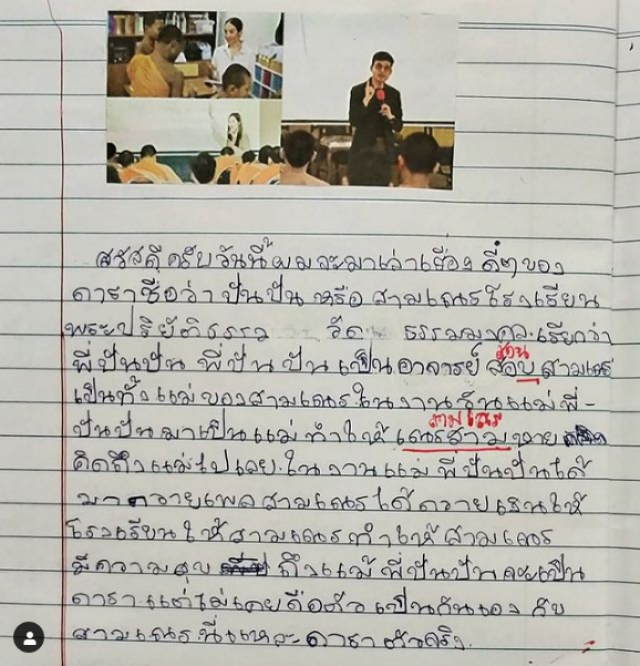 สวัสดีครับวันนี้ผมจะมาเล่าเรื่อง ดีๆของ
ดาราชือว่า ปันปัน หรือ สามเณรโรงเรียน
พระปริยัติธรรม วัด ธรรมมงคล เรียกว่า
พี่ปันปัน พี่ปัน ปัน เป็นอาจารย์ สอบ สามเณร
สอน
เป็นทั้งแม่ของสามเณร ในงานวันแม่พี่-
ปันปันมาเป็นแม่ ทำให้ เณรสาม หาย
สามเณร
คิดถึงแม่ไปเลย ในงานแม่ พี่ปันปันได้
มาถวายเพลสามเณร ได้ถวายเรนให้
โรงเรียนให้สามเณรทำให้สามเณร
มีความสุข ถึงแม้พี่ปันปันจะเป็น
ดาราแต่ไม่เคยถือตัว เป็นกันเอง กับ
สามเณร นี่แหละดาราตัวจริง.